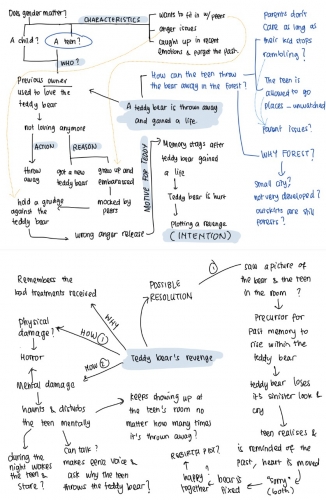 Does gender matter?
CHARACTERISTICS
wants to fit in w/peers
anger issues
caught up in recent
emotions & forget the past
A child?
A teen?
WHO?
Parents don't
care as long as
their kid stops
rambling?
The teen is
allowed to go
places - unwatched
Parent Issues?
WHY FOREST?
small city?
not very developed?
outskirts are still
forests?
How can the teen throw
the bear away in the forest?
Previous owner
used to love the
teddy bear
A teddy bear is thrown away
and gained a life.
not loving anymore
ACTION
REASON
throw
away
got a new
teddy bear
grew up and
embarrassed
hold a grudge
against the
teddy bear
mocked by
peers
wrong anger release
MOTIVE FOR TEDDY
Memory stays after
teddy bear gained
a life
Teddy bear is hurt
Plotting a revenge
(INTENTION)
Remembers the
bad treatments received
POSSIBLE
RESOLUTION
①
saw a picture of
the bear & the teen
in the room ?
Physical
damage?
HOW ①
WHY
Horror
HOW ②
Teddy bear's revenge
Precursor for
past memory to
rise within the
teddy bear
Mental damage
teddy bear loses
it's sinister look &
cry
haunts & disturbs
the teen mentally
keeps showing up
at the teen's room no
matter how many times
it's thrown away?
teen realises &
is reminded of the
past, heart is moved
during the
night wakes
the teen &
stare?
can talk?
makes eerie voice &
ask why the teen
throws the teddy bear?
happy
together
bear is
fixed
"sorry"
(both)